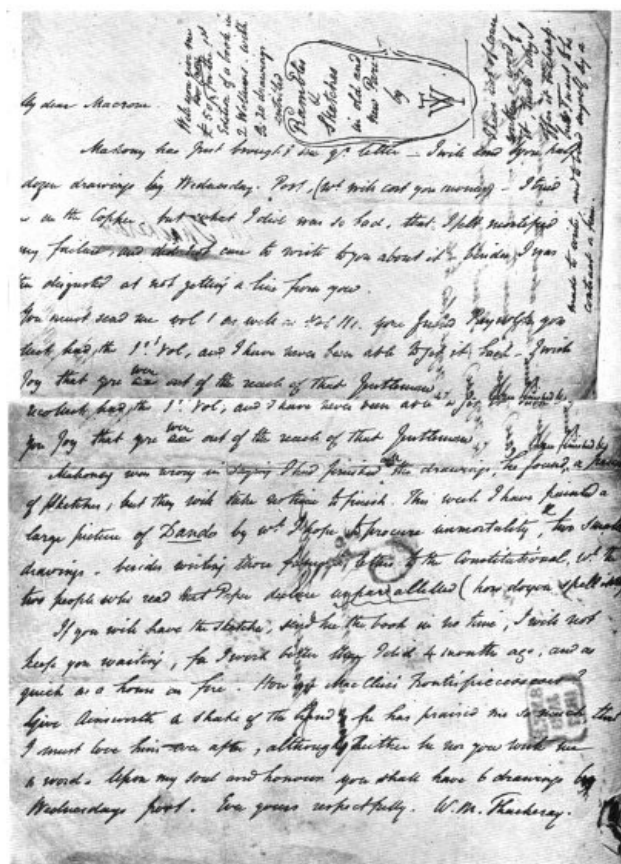 Will you give me
£50
Edition of a book in
2 Volumes. with
20 drawings
entitled
Rambles
&
Sketches
in old and
new Paris
by
WT
made to write, and to bind myself by a
contract or fine.
My dear Macrone.
Mahony has just brought me yr. letter - I will send you half
dozen drawings by Wednesday. Post, (wh. will cost you money) - I tried
on the Copper, but what I did was so bad, that I felt mortified
my failure, and did not care to write to you about it - besides, I was
disgusted at not getting a line from you.
You must send me vol 1 as well as Vol II. your friend Reynolds
had the 1st Vol, and I have never been able to get it back - I wish
Joy that you're ever out of the reach of that Gentleman
had, the 1st. Vol, and I have never been able
you Joy that you're ever out of the reach of that Gentleman
Mahoney was wrong in saying I had finished the drawings, he found, a
of Sketches, but they will take no time to finish. This week I have painted a
large picture of Dando by wh. I hope to procure immortality, & two small
drawings. besides writing those letters to the Constitutional, wh. the
two people who read that Paper declare unparallelled (how do you spell
If you will have the sketches, send me the book in no time, I will not
keep you waiting, for I work better than I did 4 months ago, and as
quick as a house on fire. How is MacClise's Frontispiece
Give Ainsworth a shake of the hand he has praised me so much that
I must love him ever after, although neither he nor you write me
a word. Upon my soul and honour you shall have 6 drawings by
Wednesdays post. Ever yours respectfully. W. M. Thackeray.